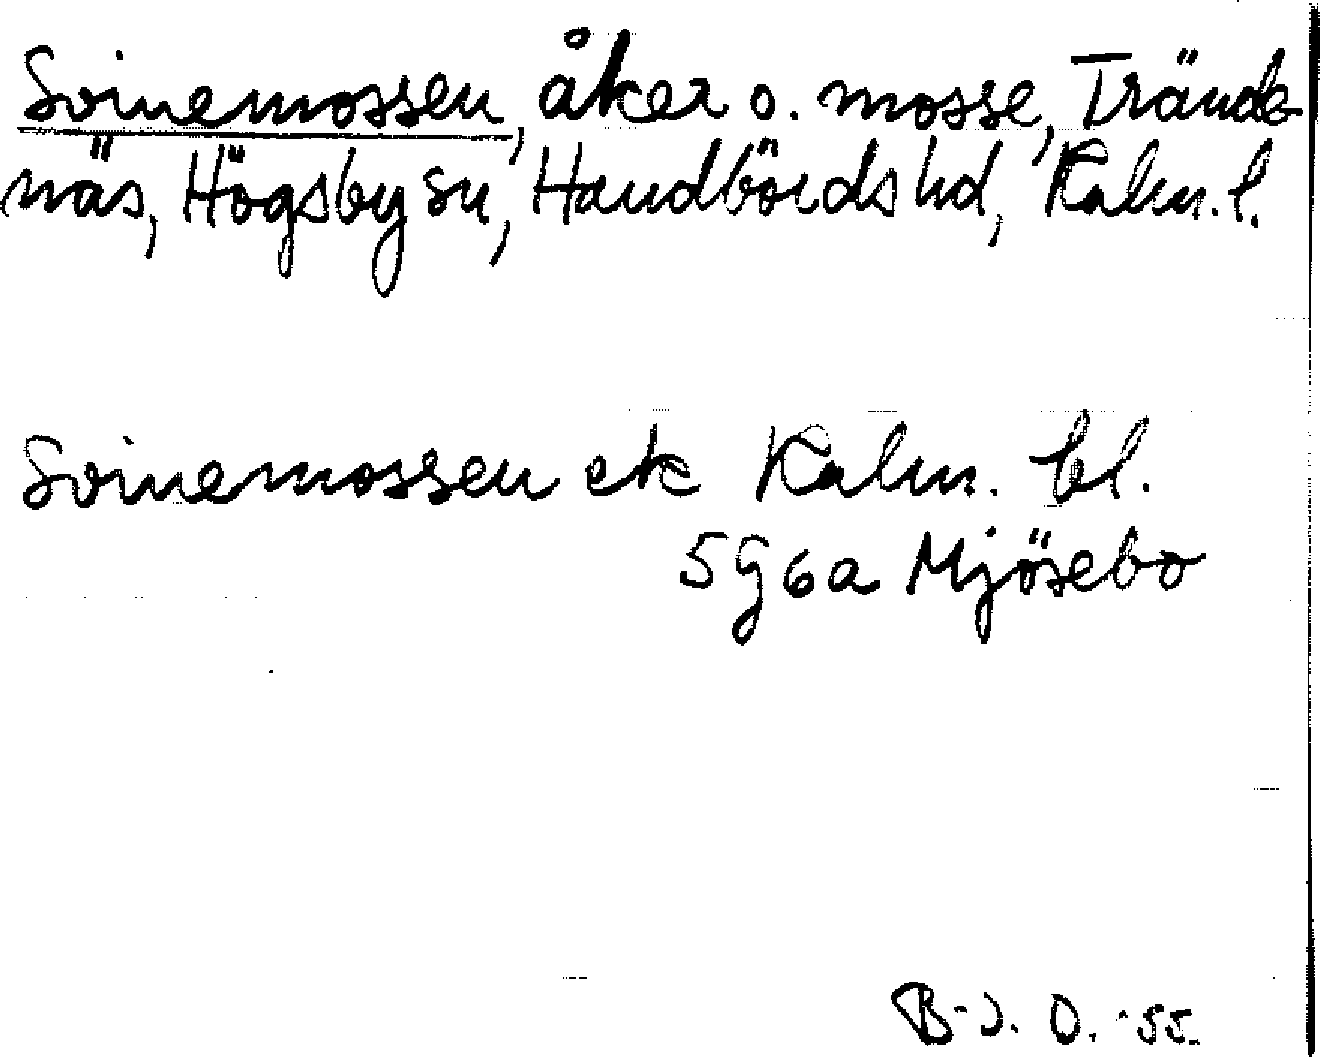 Svinemossen, åker o. mosse, Trånds-
näs, Högsby sn, Handbörds hd, Kalm. l.
Svinemossen ek Kalm. bl.
5 G 6 a Mjösebo
B-J. O. -55.